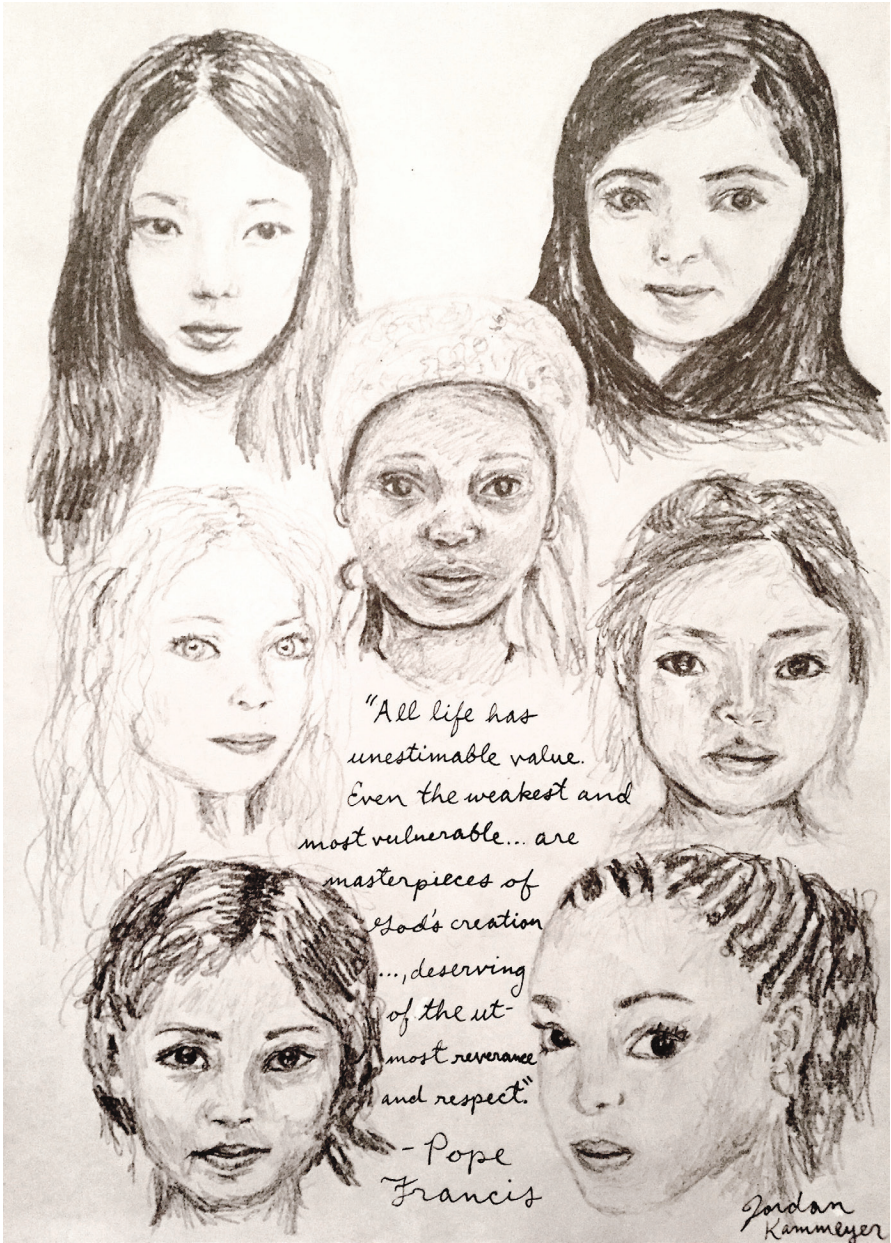 "All life has
unestimable value.
Even the weakest and
most vulnerable... are
masterpieces of
God's creation
...,deserving
of the ut-
most reverance
and respect."
- Pope
Francis
Jordan
Kammeyer